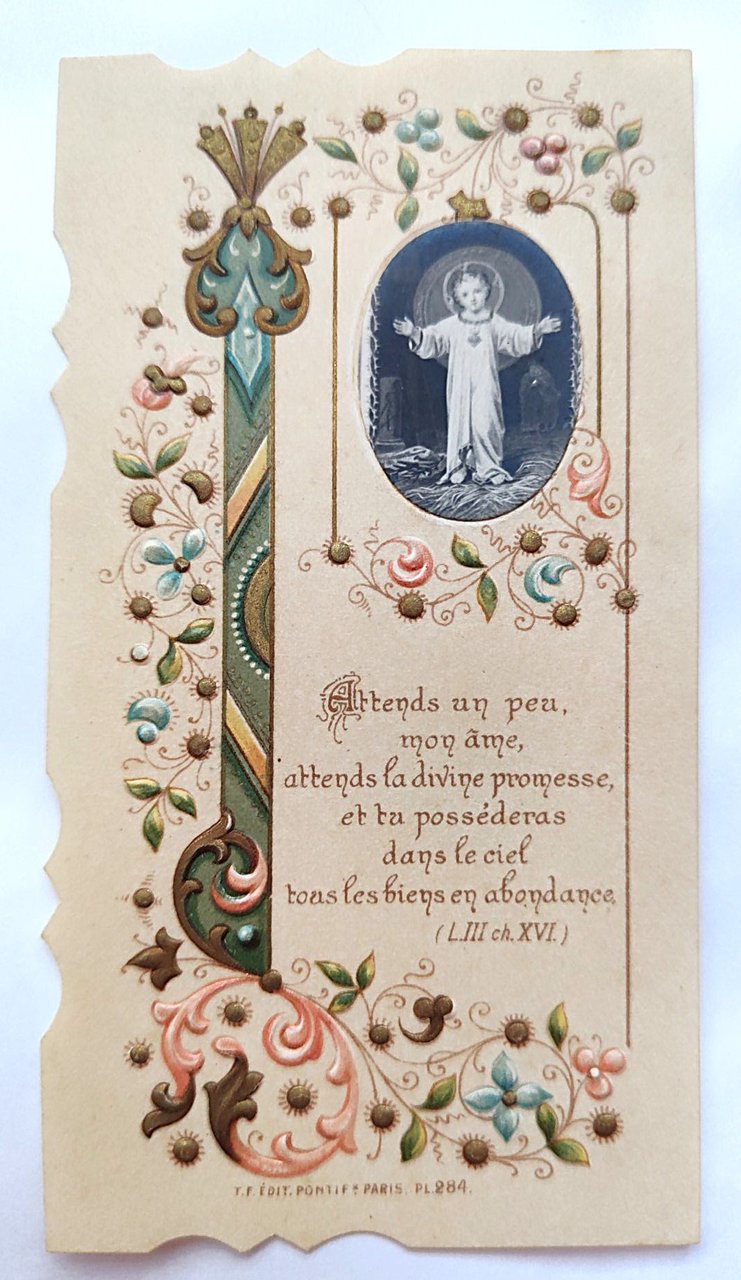 Attends un peu,
mon âme,
attends la divine promesse,
et tu posséderas
dans le ciel
tous les biens en abondance.
(L.III ch. XVI.)
T.F. ÉDIT. PONTIF. PARIS. PL.284.